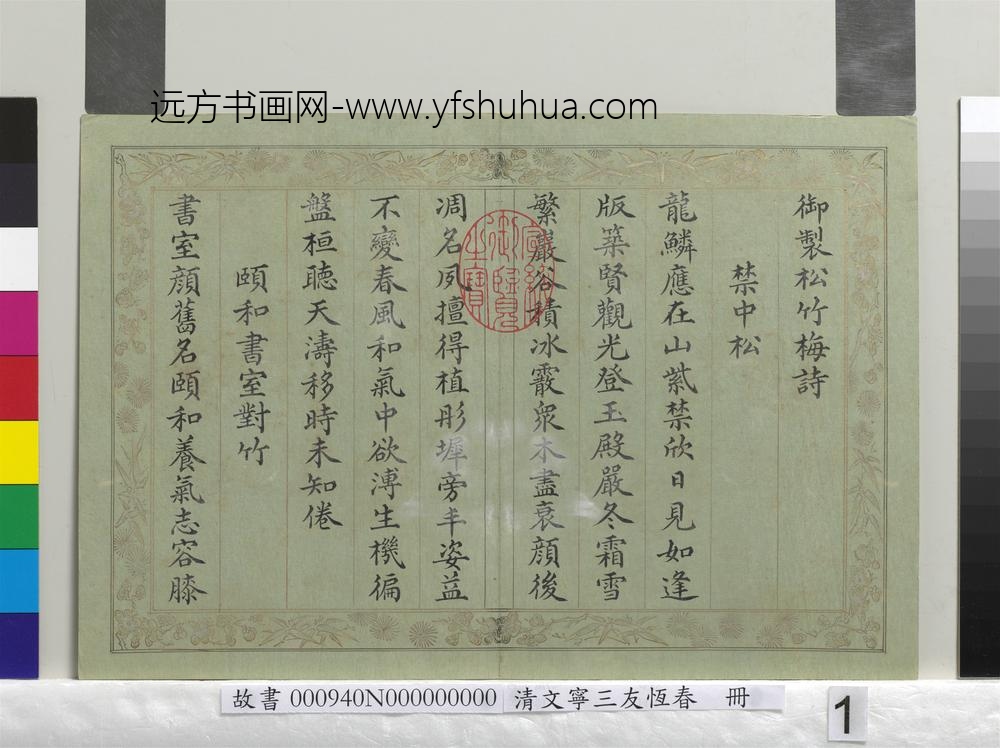 远方书画网-www.yfshuhua.com
御製松竹梅詩
禁中松
龍鱗應在山紫禁欣日見如逢
版築賢觀光登玉殿嚴冬霜雪
繁巖谷積冰霰衆木盡衰顔後
凋名夙擅得植彤墀旁丰姿益
不變春風和氣中欲溥生機徧
盤桓聽天濤移時未知倦
頤和書室對竹
書室顔舊名頤和養氣志容膝
嘉慶御覽之寶
故書 000940N000000000 清文寧三友恆春 冊
1